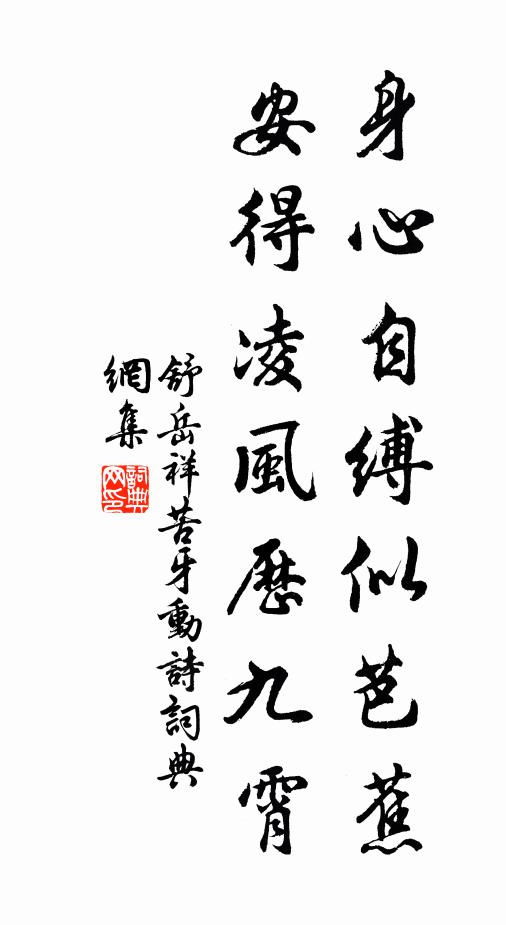 身心自縛似芭蕉
安得凌風歷九霄
舒岳祥苦牙動詩詞典
網集
詞典網印